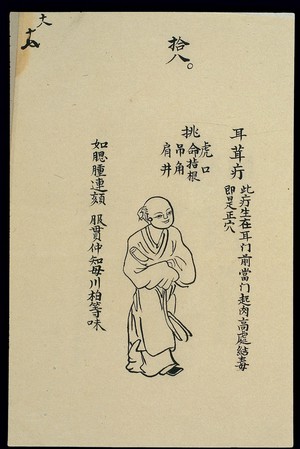 拾八。
耳茸疔
此疔生在耳门前當门起肉高處結毒
即是正穴
挑
虎口
命指根
吊角
肩井
如腮腫連頦 服貫仲知母川柏等味